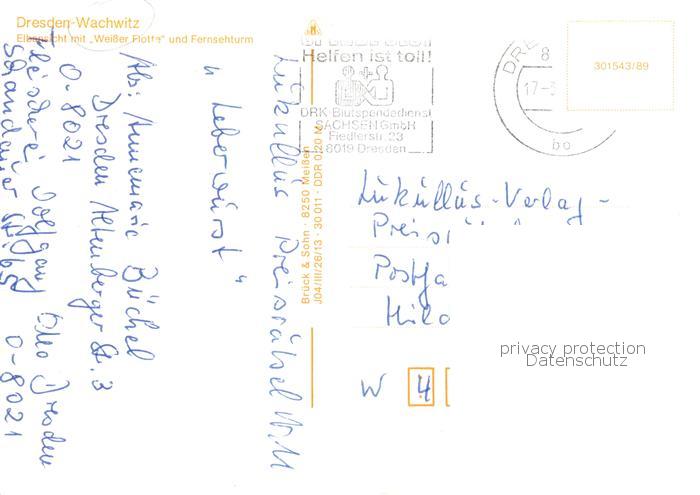 Dresden-Wachwitz
Elbansicht mit „Weißer Flotte" und Fernsehturm
Helfen ist toll!
DRK-Blutspendedienst
SACHSEN GmbH
Fiedlerstr. 23
8019 Dresden
DRE
8
17-
bo
301543/89
Brück & Sohn · 8250 Meißen
J04/III/26/13 · 30 011 · DDR 0,20 M
Lukullus Preisrätsel
"Leberwurst"
Abs: Annemarie Büchel
Dresden Altenberger Str. 3
0-8021
Fleischerei Wolfgang Otto Dresden
Schandauer 0-8021
Lukullus-Verlag-
Preis
Postfa
Hild
W 4
privacy protection
Datenschutz